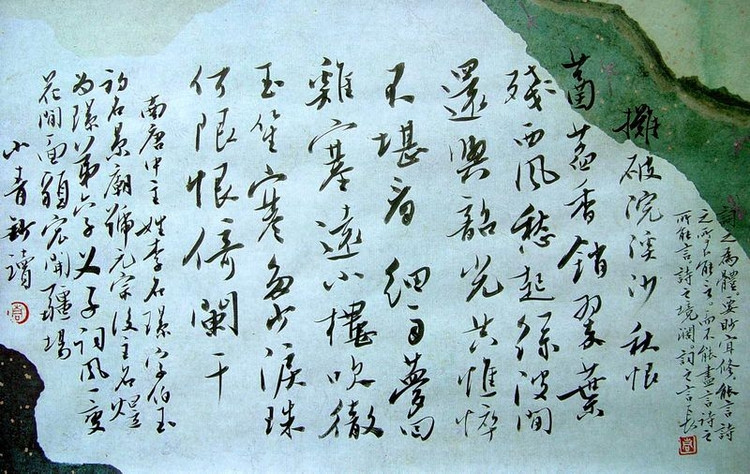 詞之為體要眇宜修能言詩
之所不能言而不能盡言詩之
所能言詩之境闊詞之言長
攤破浣溪沙 秋恨
菡萏香銷翠葉
殘西風愁起綠波間
還與韶光共憔悴
不堪看細雨夢回
雞塞遠小樓吹徹
玉笙寒多少淚珠
何限恨倚闌干
南唐中主姓李名璟字伯玉
初名景廟號元宗後主名煜
為璟第六子父子詞風一變
花間面貌宏開疆場
小青鈔讀